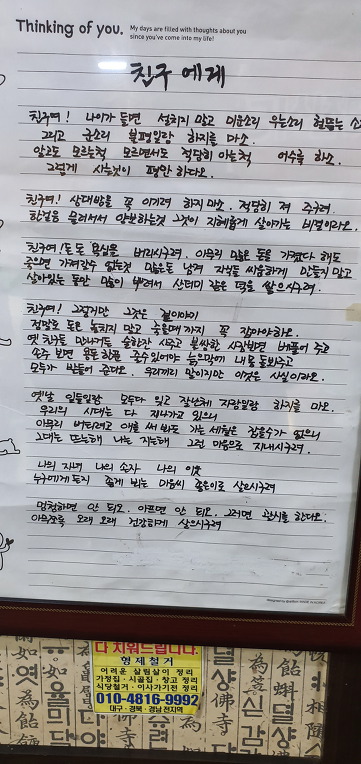 Thinking of you.
My days are filled with thoughts about you
since you've come into my life!
친구에게
친구여! 나이가 들면 설치지 말고 미운소리 우는소리 헐뜯는 소
그리고 군소리 불평일랑 하지를 마소.
알고도 모르는척 모르면서도 적당히 아는척 어수룩 하소.
그렇게 사는것이 평안 하다오.
친구여! 상대방을 꼭 이기려 하지마소. 적당히 져 주구려.
한걸음 물러서서 양보하는것 그것이 지혜롭게 살아가는 비결이라오.
친구여! 돈 돈 욕심을 버리시구려. 아무리 많은 돈을 가졌다 해도
죽으면 가져갈수 없는것 많은돈 남겨 자식들 싸움하게 만들지 말고
살아있는 동안 많이 뿌려서 산더미 같은 덕을 쌓으시구려.
친구여! 그렇지만 그것은 겉이야기
정말로 돈은 놓치지 말고 죽을때까지 꼭 잡아야하오.
옛 친구를 만나거든 술한잔 사주고 불쌍한 사람보면 베풀어 주고
손주 보면 용돈 한푼 줄수있어야 늙으막에 내 몸 돌봐주고
모두가 받들어 준다오. 우리끼리 말이지만 이것은 사실이라오.
옛날 일들일랑 모두다 잊고 잘난체 자랑일랑 하지를 마오.
우리의 시대는 다 지나가고 있으니
아무리 버티려고 애를 써 봐도 가는 세월은 잡을수가 없으니
그대는 뜨는해 나는 지는해 그런 마음으로 지내시구려.
나의 자녀 나의 손자 나의 이웃
누구에게든지 좋게 뵈는 마음씨 좋은이로 살으시구려
멍청하면 안 되오. 아프면 안 되오. 그러면 괄시를 한다오.
아무쪼록 오래 오래 건강하게 살으시구려
다 치워드립니다.
형제철거
어려운 살림살이 정리
가정집·시골집·창고 정리
식당철거·이사가기전 정리
010-4816-9992
대구·경북·경남 전지역